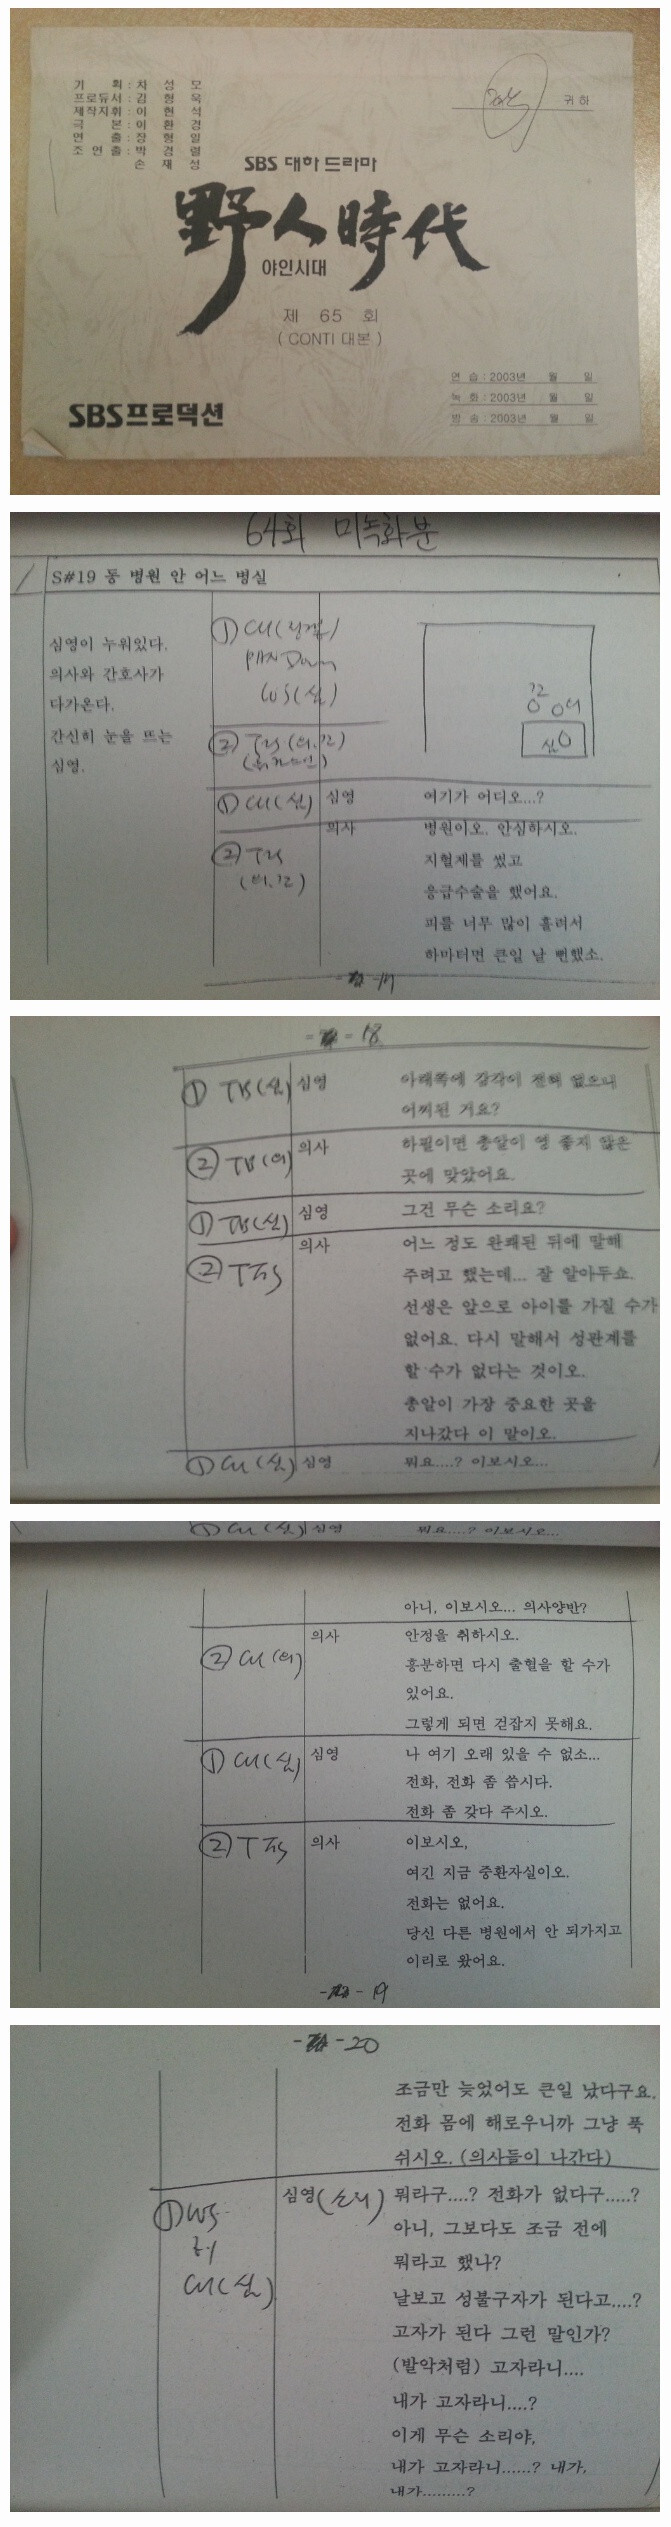 기 획 : 차 성 모
프로듀서 : 김 형 욱
제작지휘 : 이 현 석
극 본 : 이 환 경
연 출 : 장 형 일
조 연 출 : 박 경 렬
손 재 성
귀 하
SBS 대하 드라마
野人時代
야인시대
제 65 회
( CONTI 대본 )
연 습 : 2003년 월 일
녹 화 : 2003년 월 일
방 송 : 2003년 월 일
SBS프로덕션
64회 미녹화분
S#19 동 병원 안 어느 병실
심영이 누워있다.
의사와 간호사가
다가온다.
간신히 눈을 뜨는
심영.
① CU
PAN Down
WS (심)
②
① CU (심) 심영 여기가 어디오...?
② 의사 병원이오. 안심하시오.
지혈제를 썼고
응급수술을 했어요.
피를 너무 많이 흘려서
하마터면 큰일 날 뻔했소.
- 17
- 18
① TB (심) 심영 아래쪽에 감각이 전혀 없으니
어찌된 거요?
② TB (의) 의사 하필이면 총알이 영 좋지 않은
곳에 맞았어요.
① TB (심) 심영 그건 무슨 소리요?
② 의사 어느 정도 완쾌된 뒤에 말해
주려고 했는데... 잘 알아두쇼.
선생은 앞으로 아이를 가질 수가
없어요. 다시 말해서 성관계를
할 수가 없다는 것이오.
총알이 가장 중요한 곳을
지나갔다 이 말이오.
① CU (심) 심영 뭐요....? 이보시오...
① CU (심) 심영 뭐요....? 이보시오...
아니, 이보시오... 의사양반?
② CU (의) 의사 안정을 취하시오.
흥분하면 다시 출혈을 할 수가
있어요.
그렇게 되면 걷잡지 못해요.
① CU (심) 심영 나 여기 오래 있을 수 없소...
전화, 전화 좀 씁시다.
전화 좀 갖다 주시오.
② 의사 이보시오,
여긴 지금 중환자실이오.
전화는 없어요.
당신 다른 병원에서 안 되가지고
이리로 왔어요.
- 19
- 20
조금만 늦었어도 큰일 났다구요.
전화 몸에 해로우니까 그냥 푹
쉬시오. (의사들이 나간다)
① WS 심영 (소리) 뭐라구....? 전화가 없다구.....?
CU (심)
아니, 그보다도 조금 전에
뭐라고 했나?
날보고 성불구자가 된다고....?
고자가 된다 그런 말인가?
(발악처럼) 고자라니....
내가 고자라니....?
이게 무슨 소리야,
내가 고자라니......? 내가,
내가.........?